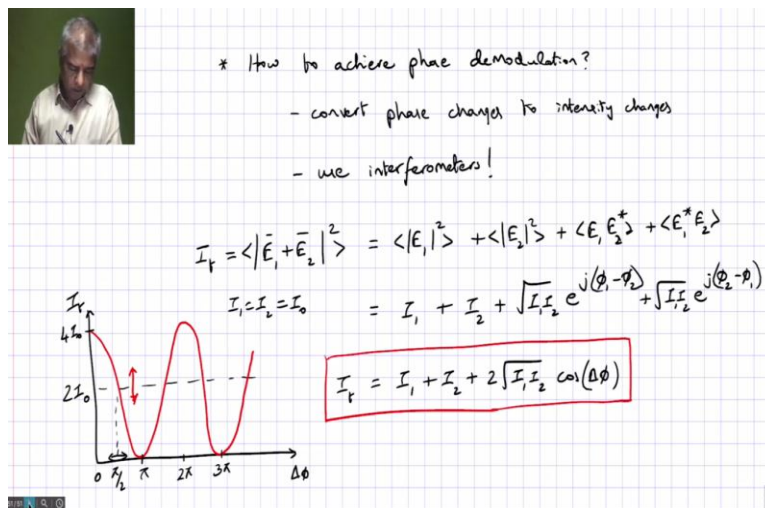 * How to achieve phase demodulation?
- convert phase changes to intensity changes
- use interferometers!
I_r = <|Ē_1 + Ē_2|^2> = <|E_1|^2> + <|E_2|^2> + <E_1 E_2^*> + <E_1^* E_2>
I_1 = I_2 = I_0
= I_1 + I_2 + √(I_1 I_2) e^{j(φ_1 - φ_2)} + √(I_1 I_2) e^{j(φ_2 - φ_1)}
I_r = I_1 + I_2 + 2√(I_1 I_2) cos(Δφ)
I_r
4I_0
2I_0
0 π/2 π 2π 3π Δφ